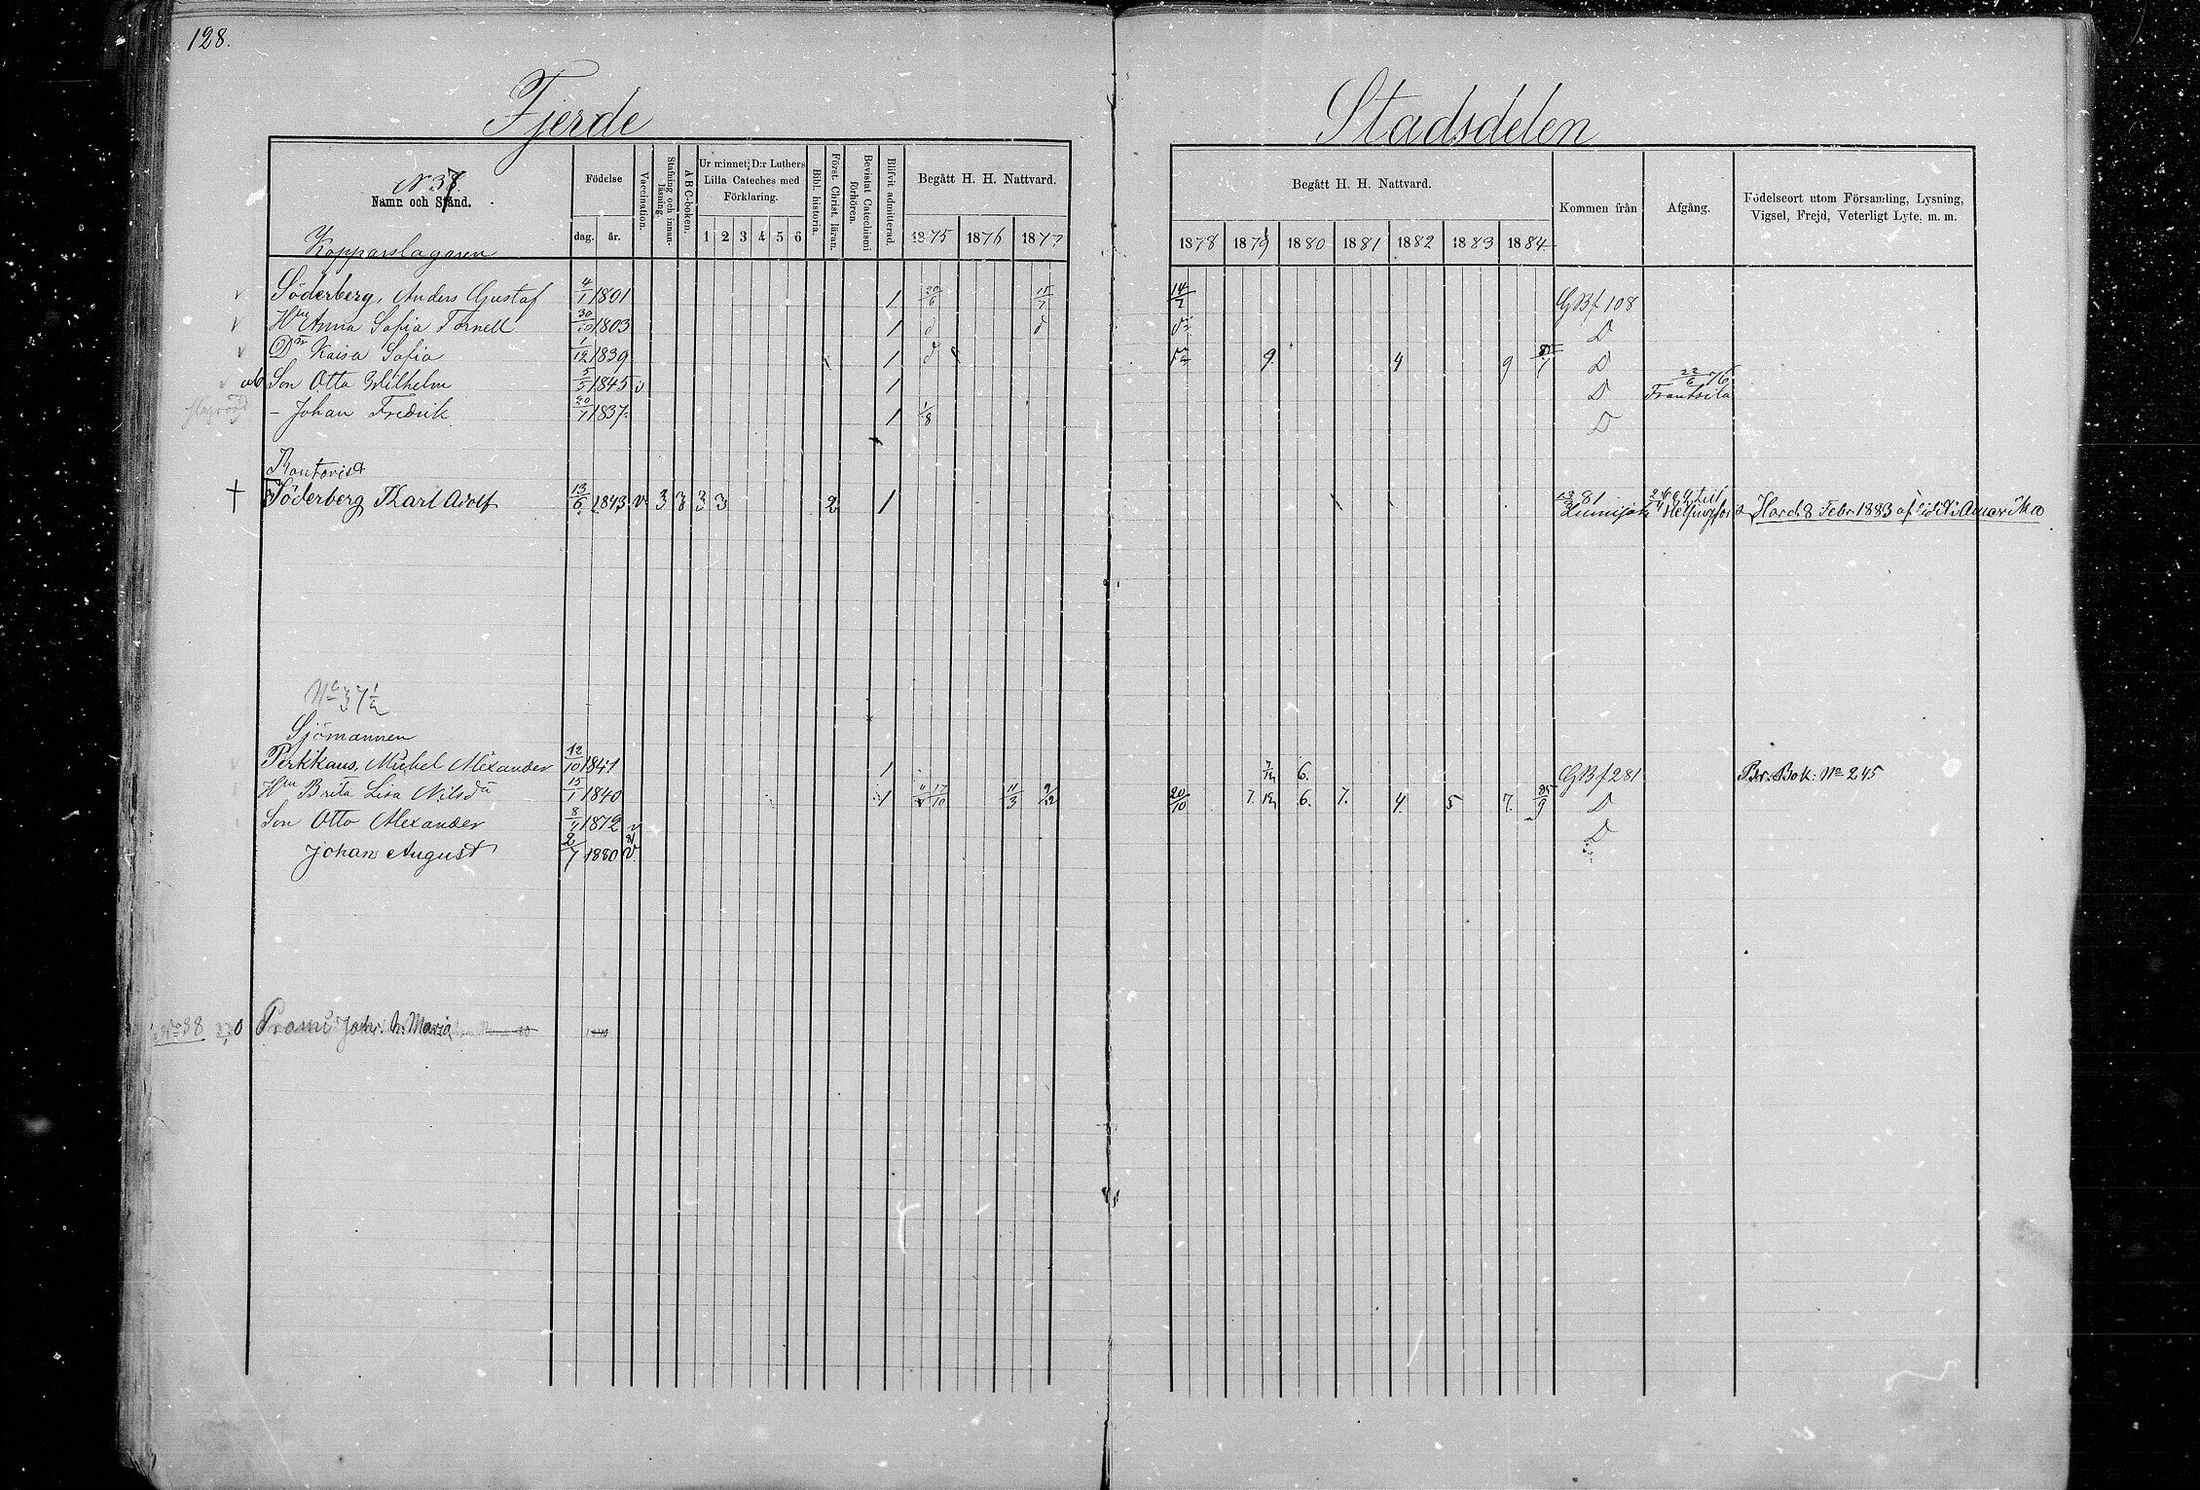 128.
Fjerde
Stadsdelen
N 37.
Namn och Stånd.
Födelse
dag. år.
Vaccination.
Stafning och innanläsning.
ABC-boken.
Ur minnet; D:r Luthers Lilla Cateches med Förklaring.
1 2 3 4 5 6
Bibl. historia.
Först. Christ. läran.
Bevistat Catechismi förhören.
Blifvit admitterad.
Begått H. H. Nattvard.
1875 1876 1877
Begått H. H. Nattvard.
1878 1879 1880 1881 1882 1883 1884
Kommen från
Afgång.
Födelseort utom Församling, Lysning, Vigsel, Frejd, Veterligt Lyte, m. m.
Kopparslagaren
Söderberg, Anders Gustaf 4/1 1801 1 20/6 15/7 14/7 GBf 108
Hu Anna Sofia Tornell 30/10 1803 1 d d D
Dr Kaisa Sofia 1/12 1839 1 d 9. 4 9 D
ab Son Otto Wilhelm 5/5 1845 v 1 D 22/6 76 Frantsila
- Johan Fredrik 20/1 1837 1 1/8 D
Kontorist
† Söderberg Karl Adolf 13/6 1843 v 3 3 3 3 2 1 81 Lumijoki Helsingfors Hörd. 8 Febr 1883 aflid. i Amerika
No 37 1/2
Sjömannen
Perkkaus, Mickel Alexander 12/10 1841 1 7/12 6. GBf 281 Br. Bok: No 245
Hu Brita Lisa Nilsdr 15/1 1840 1 17/10 11/3 9/12 20/10 7. 12 6. 7. 4. 5 7. 85/9 D
Son Otto Alexander 8/4 1872 v D
Johan August 2/7 1880 v
No 38 Joh. h. Maria